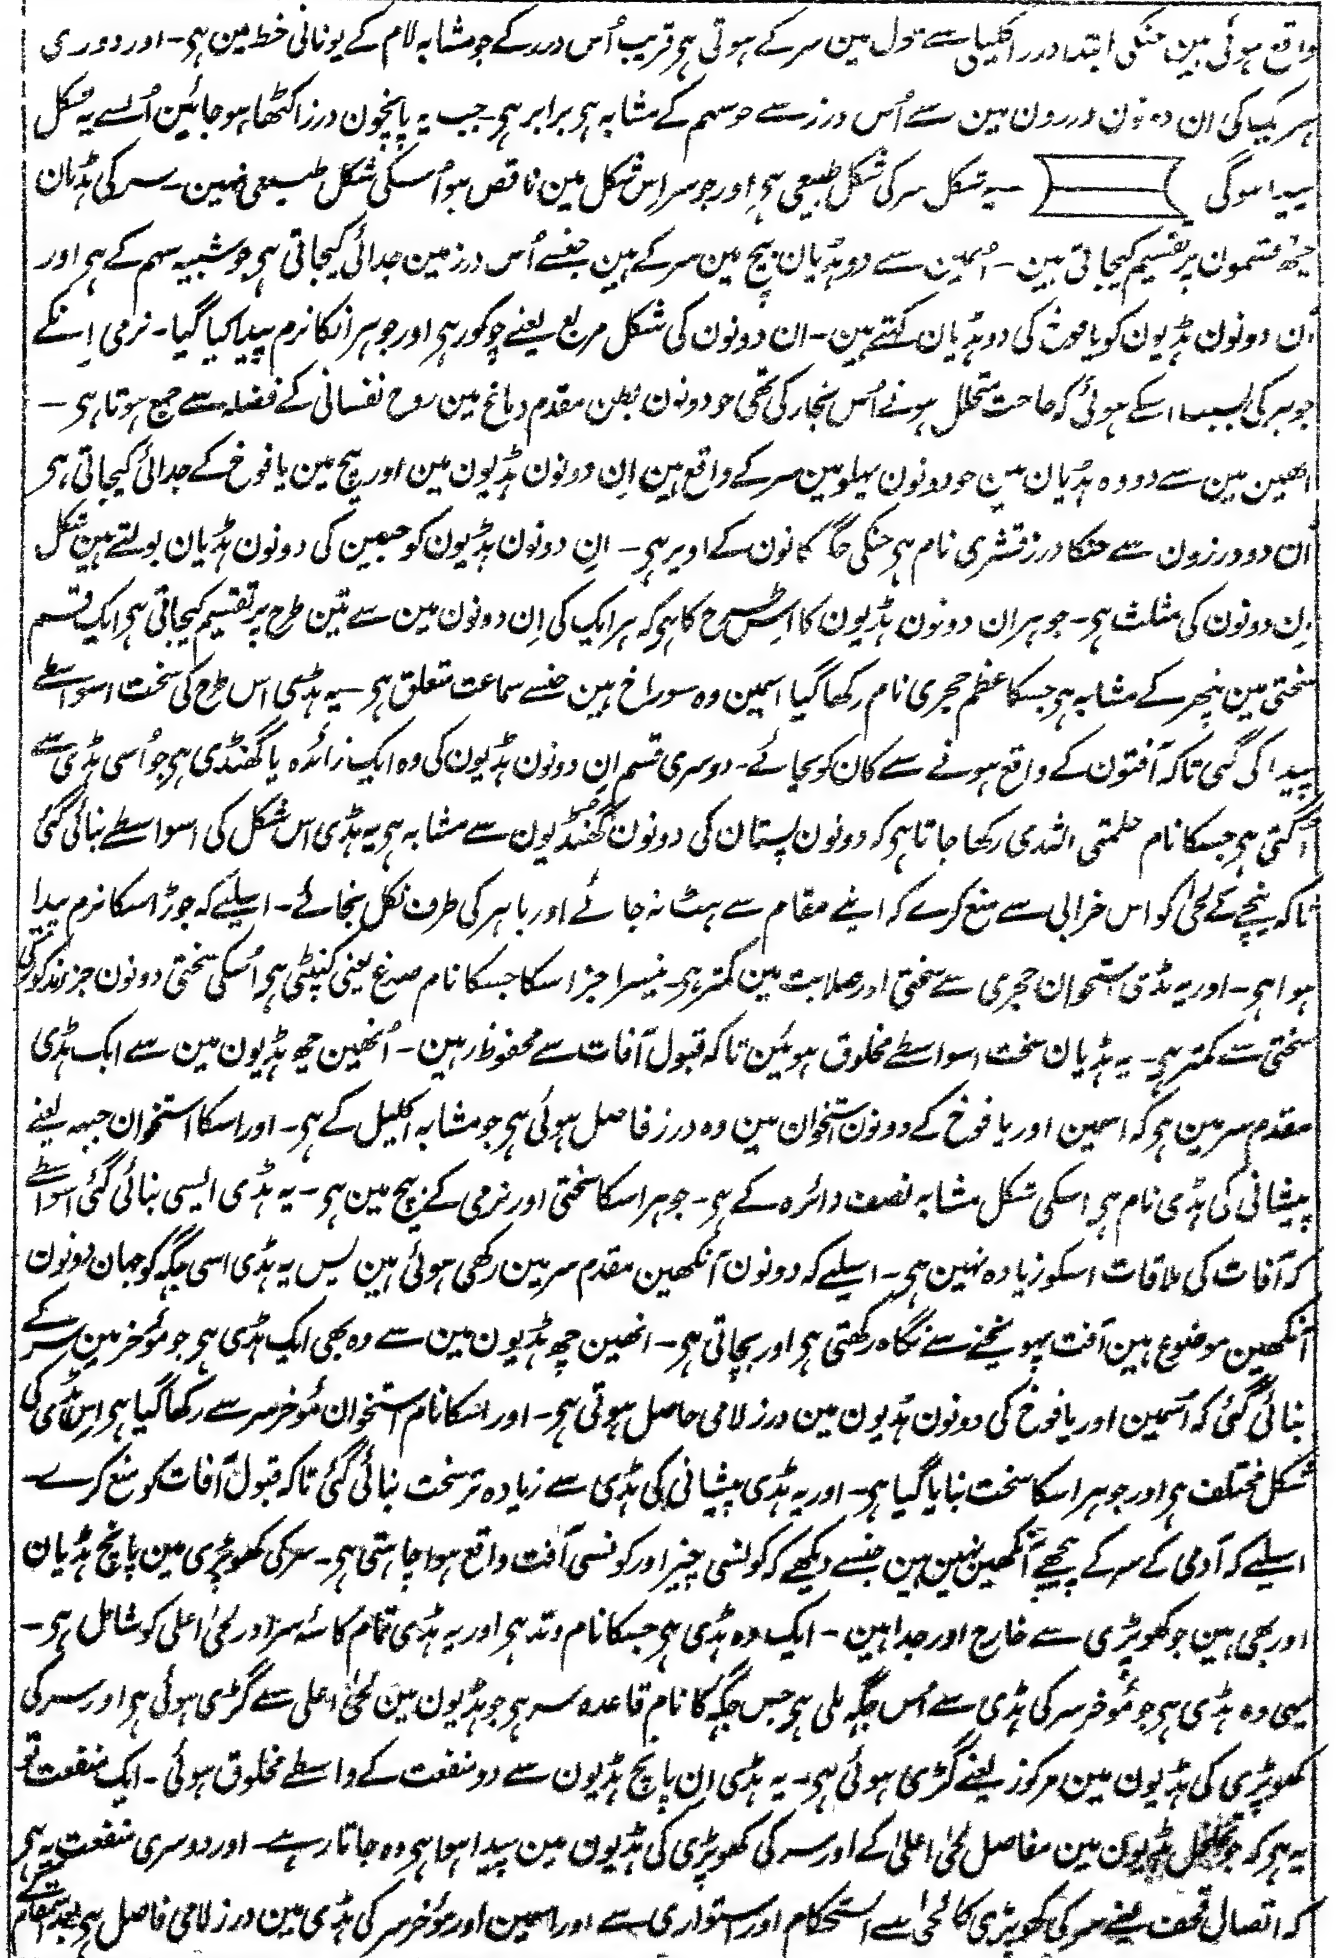 واقع ہوئی ہین جنکی ابتدا درز اکلیلی سے طول مین سر کے ہوتی ہی قریب اُس درز کے جو مشابہ لام کے یونانی خط مین ہی۔ اور دوری
ہر یک کی ان دونون درزون مین سے اُس درز سے جو سہم کے مشابہ ہی برابر ہی۔ جب یہ پانچون درز اکٹھا ہو جائین اُنسے یہ شکل
پیدا ہوگی یہ شکل سر کی شکل طبیعی ہی اور جو سر اِس شکل مین ناقص ہو اُسکی شکل طبیعی نہین۔ سر کی ہڈیان
چھ قسمون پر تقسیم کیجاتی ہین۔ اُنمین سے دو ہڈیان بیچ مین سر کے ہین جنسے اُس درز مین جدائی کیجاتی ہی جو شبیہ سہم کے ہی اور
اُن دونون ہڈیون کو یافوخ کی دو ہڈیان کہتے ہین۔ ان دونون کی شکل مربع یعنے چوکور ہی اور جوہر انکا نرم پیدا کیا گیا۔ نرمی اِنکے
جوہر کی بسبب اسکے ہوئی کہ حاجت متحلل ہونے اُس بخار کی تھی جو دونون بطن مقدم دماغ مین روح نفسانی کے فضلہ سے جمع ہوتا ہی۔
انھین مین سے دو وہ ہڈیان ہین جو دونون پہلو مین سر کے واقع ہین اِن دونون ہڈیون مین اور بیچ مین یافوخ کے جدائی کیجاتی ہی
اُن دو درزون سے جنکا درز قشری نام ہی جنکی جگہ کانون کے اوپر ہی۔ اِن دونون ہڈیون کو جبین کی دونون ہڈیان بولتے ہین شکل
اِن دونون کی مثلث ہی۔ جوہر ان دونون ہڈیون کا اِس طرح کا ہی کہ ہر ایک کی اِن دونون مین سے تین طرح پر تقسیم کیجاتی ہی ایک قسم
سختی مین پتھر کے مشابہ ہی جسکا عظم حجری نام رکھا گیا اسمین وہ سوراخ ہین جنسے سماعت متعلق ہی۔ یہ ہڈی اس طرح کی سخت اسواسطے
پیدا کی گئی تاکہ آفتون کے واقع ہونے سے کان کو بچائے۔ دوسری قسم اِن دونون ہڈیون کی وہ ایک زائدہ یا گھنڈی ہی جو اُسی ہڈی سے
اُگتی ہی جسکا نام حلمتی الثدی رکھا جاتا ہی کہ دونون پستان کی دونون گھنڈیون سے مشابہ ہی یہ ہڈی اس شکل کی اسواسطے بنائی گئی
تاکہ نیچے کے لحیٰ کو اس خرابی سے منع کرے کہ اپنے مقام سے ہٹ نہ جائے اور باہر کی طرف نکل نجائے۔ اسلیے کہ جوڑ اسکا نرم پیدا
ہوا ہی۔ اور یہ ہڈی استخوان حجری سے سختی اور صلابت مین کمتر ہی۔ تیسرا جز اسکا جسکا نام صدغ یعنی کنپٹی ہی اُسکی سختی دونون جز مذکور کی
سختی سے کمتر ہی۔ یہ ہڈیان سخت اسواسطے مخلوق ہوئین تاکہ قبول آفات سے محفوظ رہین۔ اُنھین چھ ہڈیون مین سے ایک ہڈی
مقدم سر مین ہی کہ اسمین اور یافوخ کے دونون استخوان مین وہ درز فاصل ہوئی ہی جو مشابہ اکلیل کے ہی۔ اور اسکا استخوان جبہہ یعنے
پیشانی کی ہڈی نام ہی اسکی شکل مشابہ نصف دائرہ کے ہی۔ جوہر اسکا سختی اور نرمی کے بیچ مین ہی۔ یہ ہڈی ایسی بنائی گئی اسواسطے
کہ آفات کی ملاقات اسکو زیادہ نہین ہی۔ اسلیے کہ دونون آنکھین مقدم سر مین رکھی ہوئی ہین پس یہ ہڈی اسی جگہ کو جہان دونون
آنکھین موضوع ہین آفت پہونچنے سے نگاہ رکھتی ہی اور بچاتی ہی۔ انھین چھ ہڈیون مین سے وہ بھی ایک ہڈی ہی جو مُوخر مین سر کے
بنائی گئی کہ اُسمین اور یافوخ کی دونون ہڈیون مین درز لامی حاصل ہوتی ہی۔ اور اسکا نام استخوان مُوخر سر سے رکھا گیا ہی اِس ہڈی کی
شکل مختلف ہی اور جوہر اسکا سخت بنایا گیا ہی۔ اور یہ ہڈی پیشانی کی ہڈی سے زیادہ تر سخت بنائی گئی تاکہ قبول آفات کو منع کرے۔
اسلیے کہ آدمی کے سر کے پیچھے آنکھین نہین ہین جنسے دیکھے کہ کونسی چیز اور کونسی آفت واقع ہوا چاہتی ہی۔ سر کی کھوپڑی مین پانچ ہڈیان
اور بھی ہین جو کھوپڑی سے خارج اور جدا ہین۔ ایک وہ ہڈی ہی جسکا نام وتد ہی اور یہ ہڈی تمام کاسۂ سر اور لحیٰ اعلی کو شامل ہی۔
یہی وہ ہڈی ہی جو مُوخر سر کی ہڈی سے اُس جگہ ملی ہی جس جگہ کا نام قاعدہ سر ہی جو ہڈیون مین لحیٰ اعلی سے گڑی ہوئی ہی اور سر کی
کھوپڑی کی ہڈیون مین مرکوز یعنے گڑی ہوئی ہی۔ یہ ہڈی اِن پانچ ہڈیون سے دو منفعت کے واسطے مخلوق ہوئی۔ ایک منفعت تو
یہ ہی کہ جو ہڈیون مین مفاصل لحیٰ اعلیٰ کے اور سر کی کھوپڑی کی ہڈیون مین پیدا ہوا ہی وہ جاتا رہے۔ اور دوسری منفعت یہ ہی
کہ اتصال قحف یعنے سر کی کھوپڑی کا لحیٰ سے استحکام اور استواری سے اور اسمین اور موخر سر کی ہڈی مین درز لامی فاصل ہی بعد